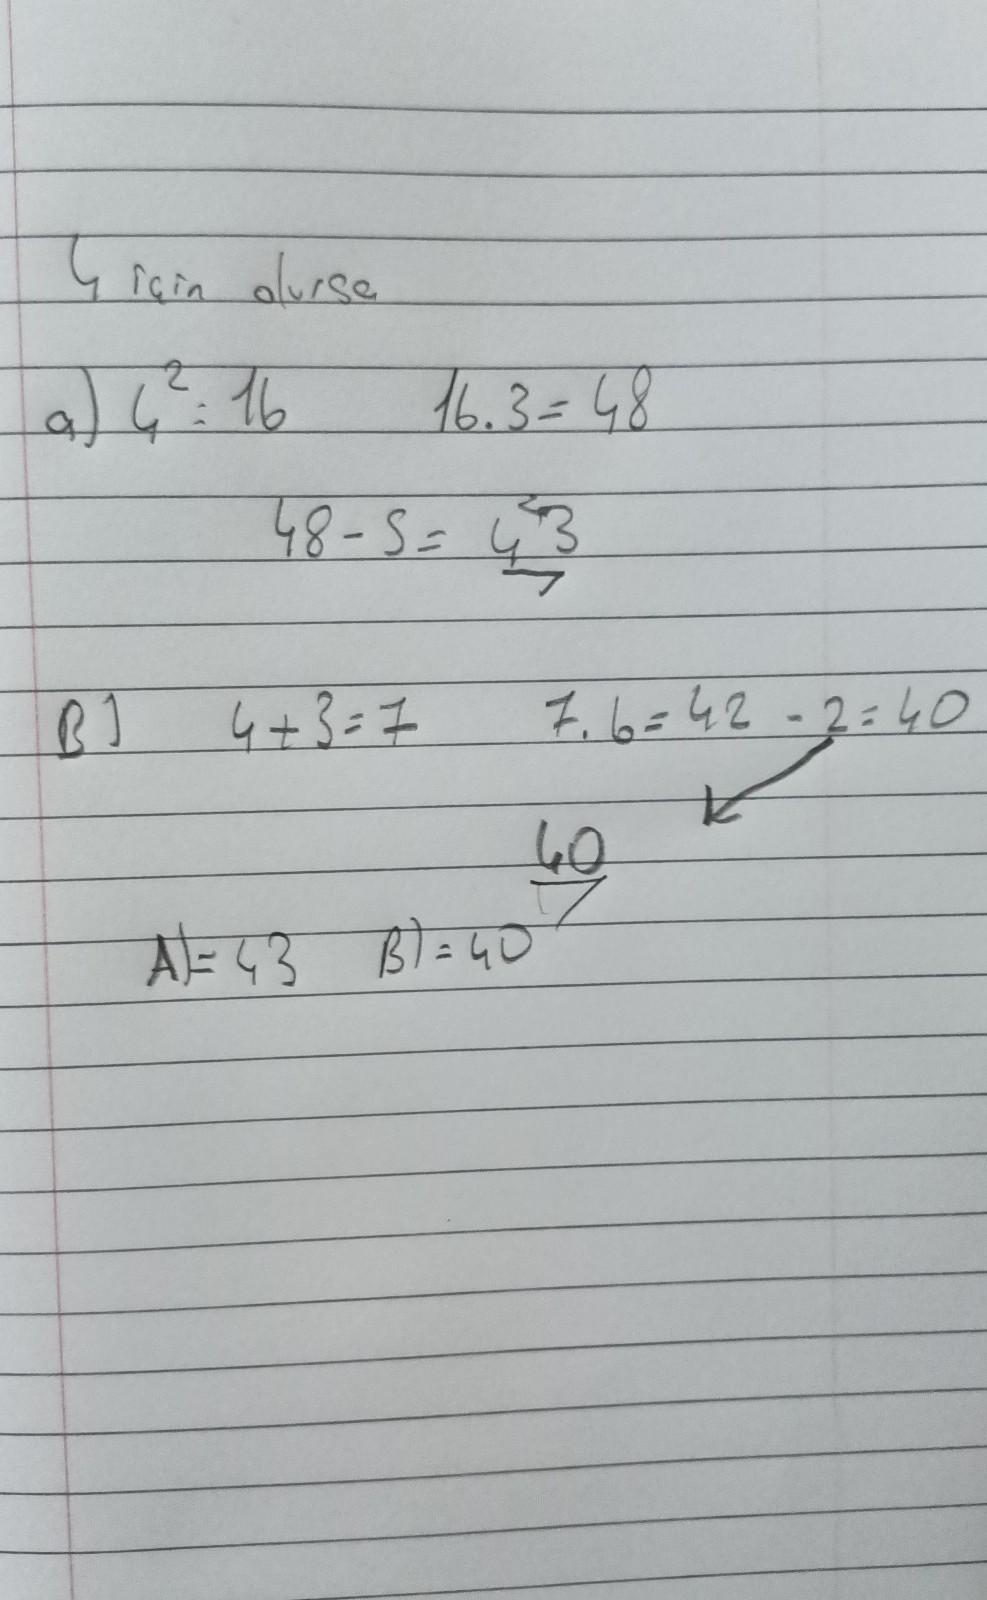 4 için olursa
a) 4² = 16 16.3 = 48
48 - 5 = 43
B) 4 + 3 = 7 7.6 = 42 - 2 = 40
40
A) = 43 B) = 40